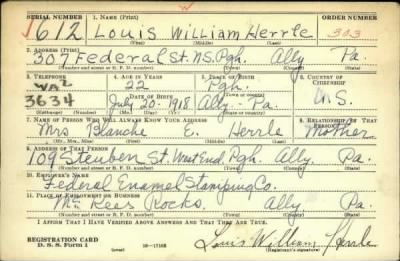 SERIAL NUMBER 1. NAME (Print) ORDER NUMBER
1612 Louis William Herrle 303
(First) (Middle) (Last)
2. ADDRESS (Print)
307 Federal St. N.S. Pgh. Ally Pa.
(Number and street or R. F. D. number) (Town) (County) (State)
3. TELEPHONE 4. AGE IN YEARS 5. PLACE OF BIRTH 6. COUNTRY OF CITIZENSHIP
22 Pgh.
DATE OF BIRTH (Town or county)
3634 July 20-1918 Ally Pa. U.S.
(Mo.) (Day) (Yr.) (State or country)
7. NAME OF PERSON WHO WILL ALWAYS KNOW YOUR ADDRESS 8. RELATIONSHIP OF THAT PERSON
Mrs Blanche E. Herrle Mother
(Mr., Mrs., Miss) (First) (Middle) (Last)
9. ADDRESS OF THAT PERSON
109 Steuben St. West End. Pgh. Ally. Pa.
(Number and street or R. F. D. number) (Town) (County) (State)
10. EMPLOYER'S NAME
Federal Enamel Stamping Co.
11. PLACE OF EMPLOYMENT OR BUSINESS
Mc Kees Rocks. Ally Pa.
(Number and street or R. F. D. number) (Town) (County) (State)
I AFFIRM THAT I HAVE VERIFIED ABOVE ANSWERS AND THAT THEY ARE TRUE.
REGISTRATION CARD
D. S. S. Form 1 (over) Louis William Herrle